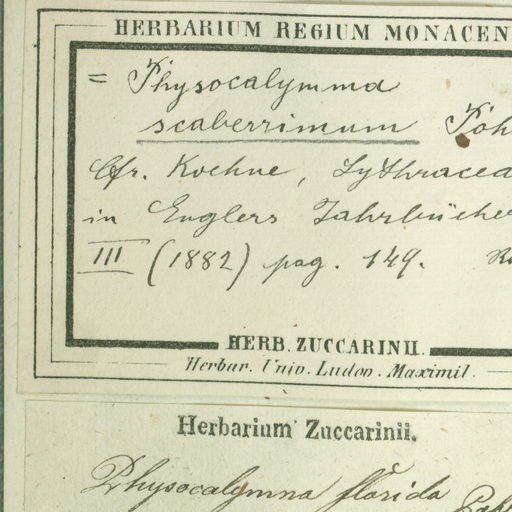 HERBARIUM REGIUM MONACEN
= Physocalymma
scaberrimum Poh
Cfr. Koehne, Lythracea
in Englers Jahrbücher
III (1882) pag. 149.
HERB. ZUCCARINII.
Herbar. Univ. Ludov. Maximil.
Herbarium Zuccarinii.
Physocalymna florida